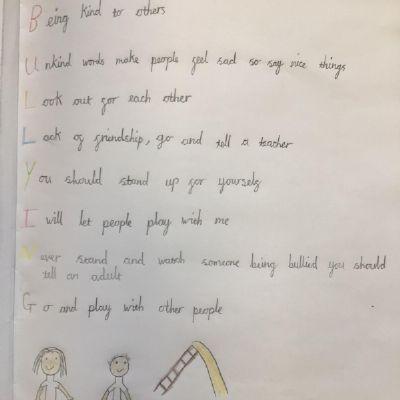 Being kind to others
Unkind words make people feel sad so say nice things
Look out for each other
Lack of friendship, go and tell a teacher
You should stand up for yourself
I will let people play with me
Never stand and watch someone being bullied you should
tell an adult
Go and play with other people